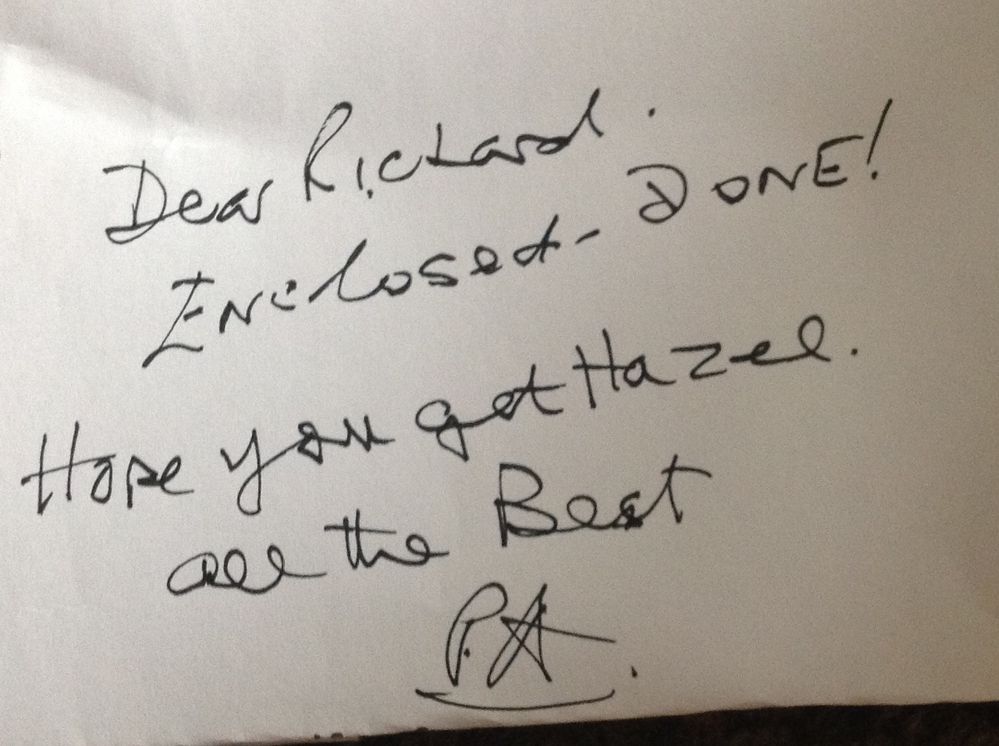 Dear Richard.
Enclosed - DONE!
Hope you got Hazel.
all the Best
P.A.